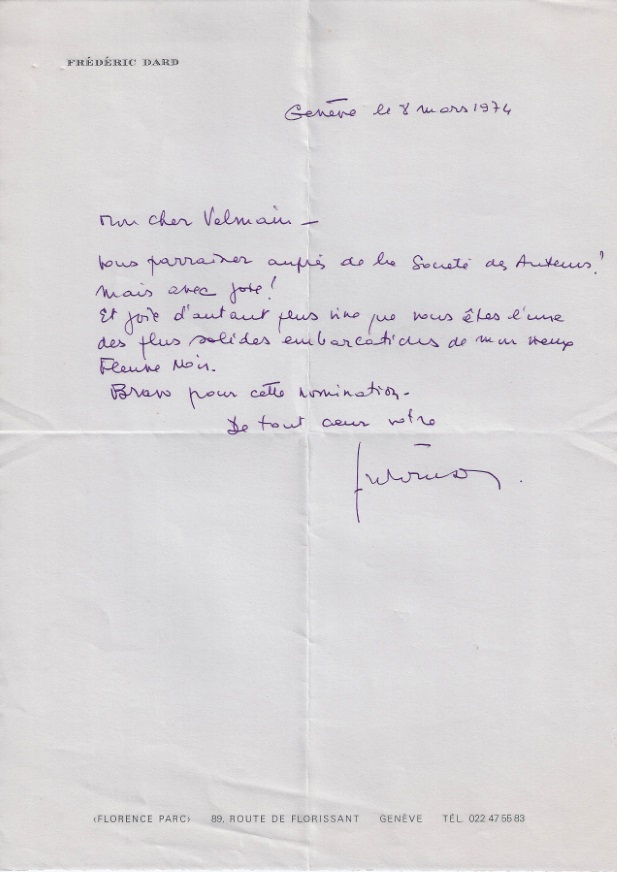 FRÉDÉRIC DARD
Genève le 8 mars 1974
Mon cher Valmain –
Vous parrainer auprès de la Société des Auteurs?
Mais avec joie!
Et joie d'autant plus vive que vous êtes l'une
des plus solides embarcations de mon vieux
Fleuve Noir.
Bravo pour cette nomination.
De tout cœur votre
(FLORENCE PARC) 89, ROUTE DE FLORISSANT GENÈVE TÉL. 022 47 55 83